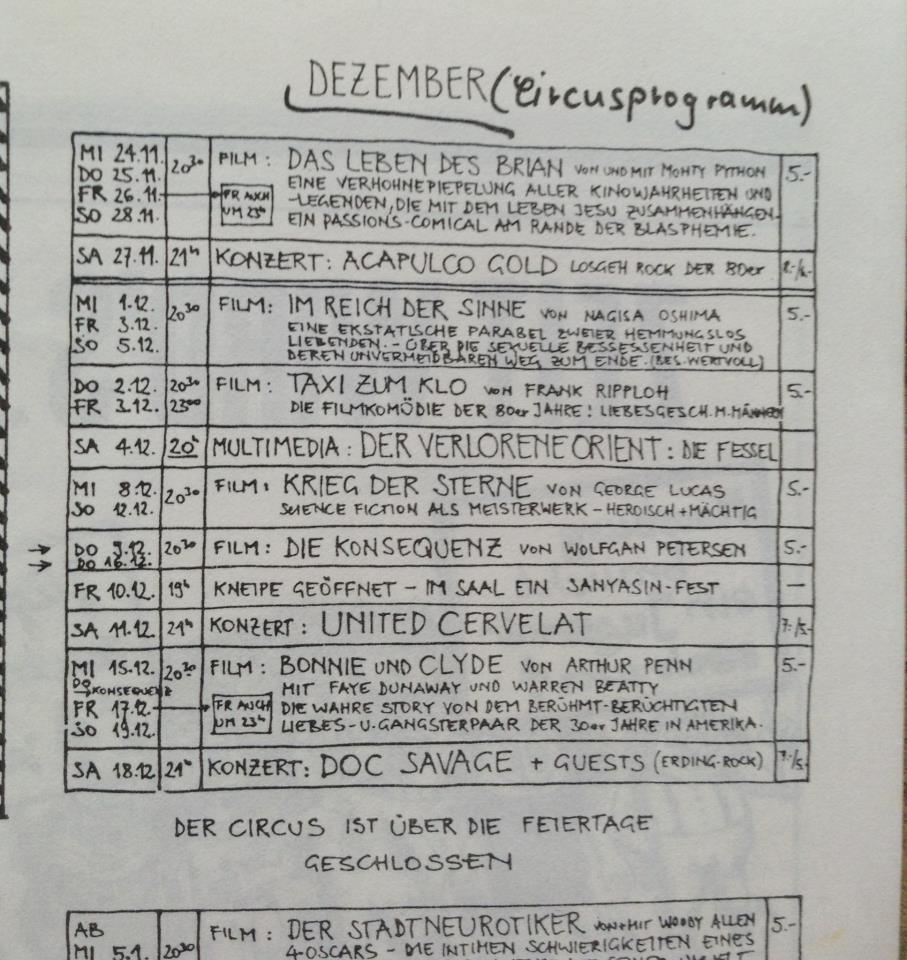 DEZEMBER (Circusprogramm)
MI 24.11. DO 25.11. FR 26.11. SO 28.11. 20³⁰ FILM: DAS LEBEN DES BRIAN VON UND MIT MONTY PYTHON 5.-
FR AUCH UM 23ʰ
EINE VERHOHNEPIEPELUNG ALLER KINOWAHRHEITEN UND
-LEGENDEN, DIE MIT DEM LEBEN JESU ZUSAMMENHÄNGEN.
EIN PASSIONS-COMICAL AM RANDE DER BLASPHEMIE.
SA 27.11. 21ʰ KONZERT: ACAPULCO GOLD LOSGEH ROCK DER 80er
MI 1.12. FR 3.12. SO 5.12. 20³⁰ FILM: IM REICH DER SINNE VON NAGISA OSHIMA 5.-
EINE EKSTATISCHE PARABEL ZWEIER HEMMUNGSLOS
LIEBENDEN. - ÜBER DIE SEXUELLE BESSESSENHEIT UND
DEREN UNVERMEIDBAREN WEG ZUM ENDE. (BES. WERTVOLL)
DO 2.12. 20³⁰ FILM: TAXI ZUM KLO VON FRANK RIPPLOH 5.-
FR 3.12. 23⁰⁰ DIE FILMKOMÖDIE DER 80er JAHRE! LIEBESGESCH. M. MÄNNERN
SA 4.12. 20ʰ MULTIMEDIA: DER VERLORENE ORIENT: DIE FESSEL
MI 8.12. SO 12.12. 20³⁰ FILM: KRIEG DER STERNE VON GEORGE LUCAS 5.-
SCIENCE FICTION ALS MEISTERWERK - HEROISCH + MÄCHTIG
→ DO 9.12. 20³⁰ FILM: DIE KONSEQUENZ VON WOLFGAN PETERSEN 5.-
→ DO 16.12.
FR 10.12. 19ʰ KNEIPE GEÖFFNET - IM SAAL EIN SANYASIN-FEST —
SA 11.12. 21ʰ KONZERT: UNITED CERVELAT 7.-/5.-
MI 15.12. DO → KONSEQUENZ FR 17.12. SO 19.12. 20³⁰ FILM: BONNIE UND CLYDE VON ARTHUR PENN 5.-
MIT FAYE DUNAWAY UND WARREN BEATTY
FR AUCH UM 23ʰ
DIE WAHRE STORY VON DEM BERÜHMT-BERÜCHTIGTEN
LIEBES- U. GANGSTERPAAR DER 30er JAHRE IN AMERIKA.
SA 18.12 21ʰ KONZERT: DOC SAVAGE + GUESTS (ERDING-ROCK) 7.-/5.-
DER CIRCUS IST ÜBER DIE FEIERTAGE
GESCHLOSSEN
AB MI 5.1. 20³⁰ FILM: DER STADTNEUROTIKER VON + MIT WOODY ALLEN 5.-
4 OSCARS - DIE INTIMEN SCHWIERIGKEITEN EINES